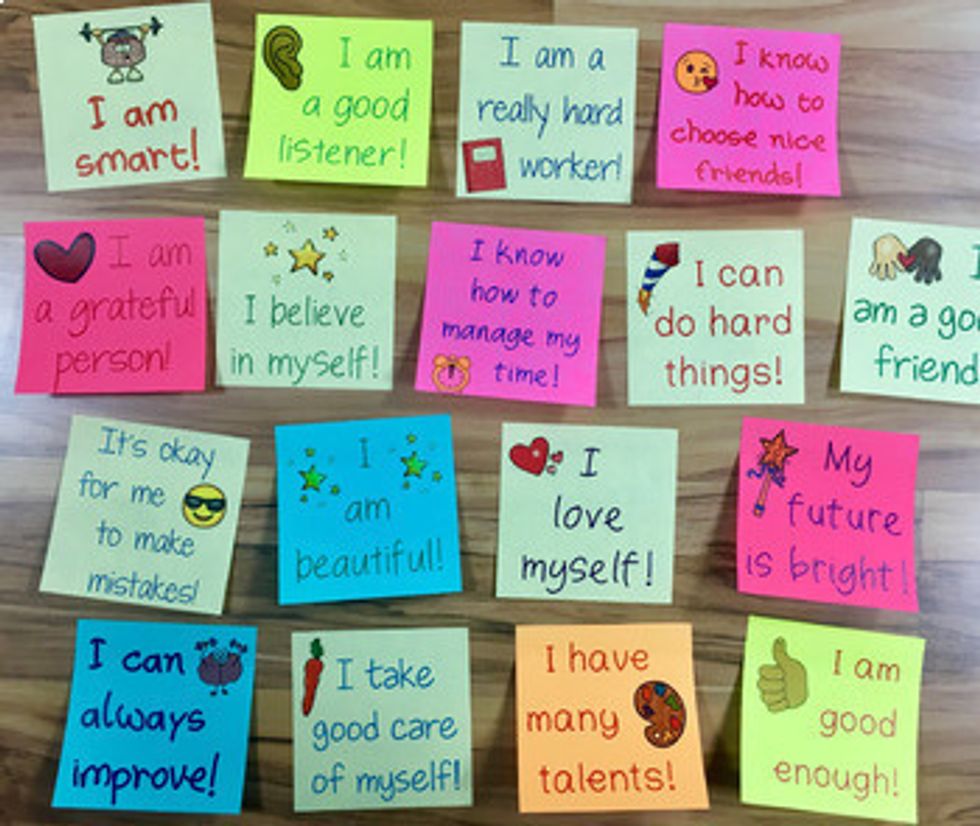 I am
smart!
I am
a good
listener!
I am a
really hard
worker!
I know
how to
choose nice
friends!
I am
a grateful
person!
I believe
in myself!
I know
how to
manage my
time!
I can
do hard
things!
am a
friend
It's okay
for me
to make
mistakes!
I
am
beautiful!
I
love
myself!
My
future
is bright!
I can
always
improve!
I take
good care
of myself!
I have
many
talents!
I am
good
enough!